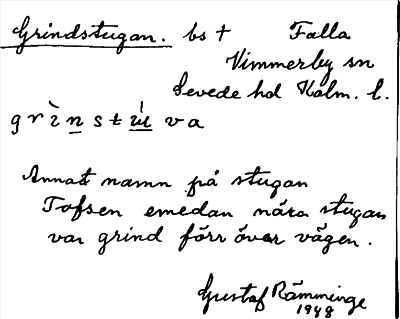 Grindstugan. bs † Falla
Vimmerby sn
Sevede hd Kalm. l.
grìnstúva
Annat namn på stugan
Tofsen emedan nära stugan
var grind förr över vägen.
Gustaf Rämminge
1948